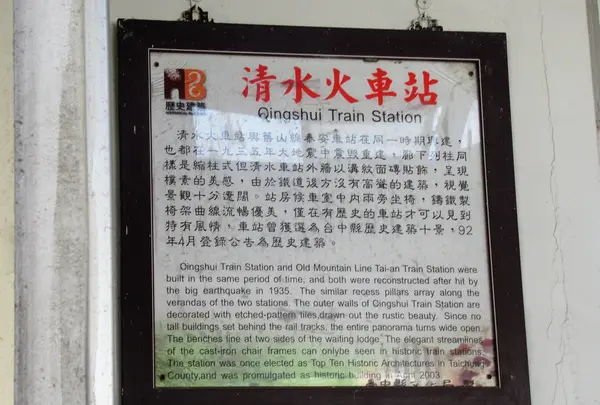 清水火車站
Qingshui Train Station
歷史建築
清水火車站與舊山線泰安車站在同一時期興建，
也都在一九三五年大地震中震毀重建，廊下列柱同
樣是縮柱式但清水車站外牆以溝紋面磚貼飾，呈現
樸素的美感，由於鐵道後方沒有高聳的建築，視覺
景觀十分遼闊。站房候車室中內兩旁坐椅，鑄鐵製
椅架曲線流暢優美，僅在有歷史的車站才可以見到
特有風情，車站曾獲選為台中縣歷史建築十景，92
年4月登錄公告為歷史建築。
Qingshui Train Station and Old Mountain Line Tai-an Train Station were
built in the same period of time, and both were reconstructed after hit by
the big earthquake in 1935. The similar recess pillars array along the
verandas of the two stations. The outer walls of Qingshui Train Station are
decorated with etched-pattern tiles,drawn out the rustic beauty. Since no
tall buildings set behind the rail tracks, the entire panorama turns wide open.
The benches line at two sides of the waiting lodge. The elegant streamlines
of the cast-iron chair frames can onlybe seen in historic train stations.
The station was once elected as Top Ten Historic Architectures in Taichung
County,and was promulgated as historic building in April 2003.